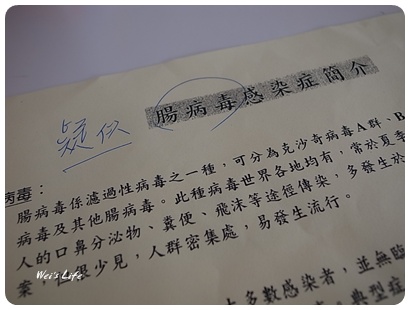 腸病毒感染症簡介
疑似
病毒：
腸病毒係濾過性病毒之一種，可分為克沙奇病毒A群、B
病毒及其他腸病毒。此種病毒世界各地均有，常於夏季
人的口鼻分泌物、糞便、飛沫等途徑傳染，多發生於
案，但很少見，人群密集處，易發生流行。
大多數感染者，並無臨
典型症
Wei's Life